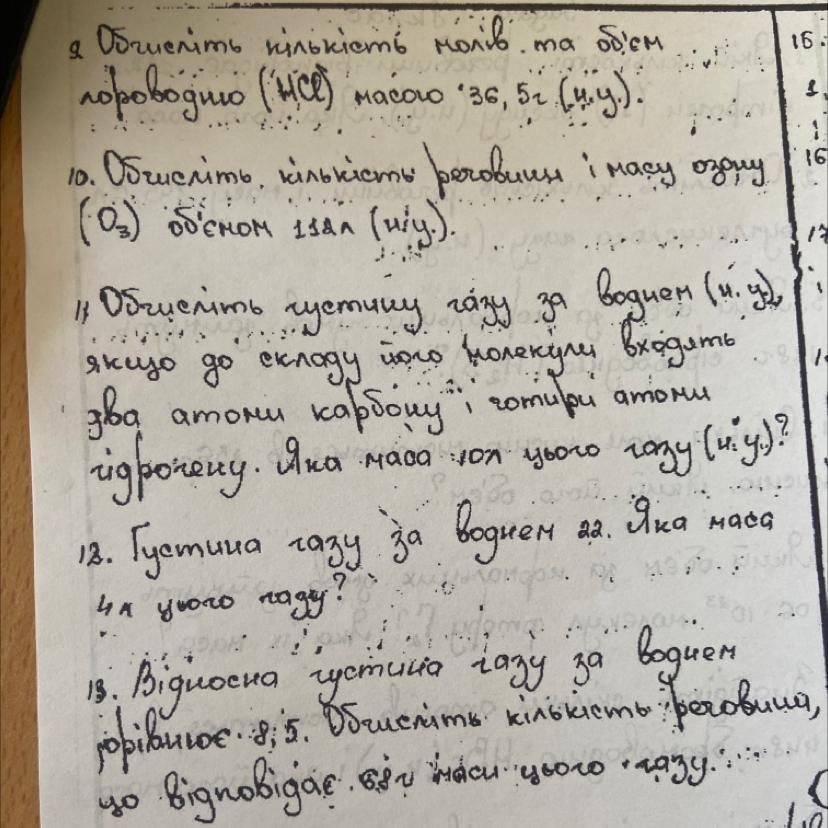 9 Обчисліть кількість молів та об'єм
лороводню (HCl) масою 36,5г (н.у.).
10. Обчисліть кількість речовини і масу озону
(O₃) об'ємом 112л (н.у.).
11 Обчисліть густину газу за воднем (н.у.),
якщо до складу його молекули входять
два атоми карбону і чотири атоми
гідрогену. Яка маса 10л цього газу (н.у.)?
12. Густина газу за воднем 22. Яка маса
4л цього газу?
13. Відносна густина газу за воднем
дорівнює 8,5. Обчисліть кількість речовини,
що відповідає 68г маси цього газу.
15.
1.
16
17